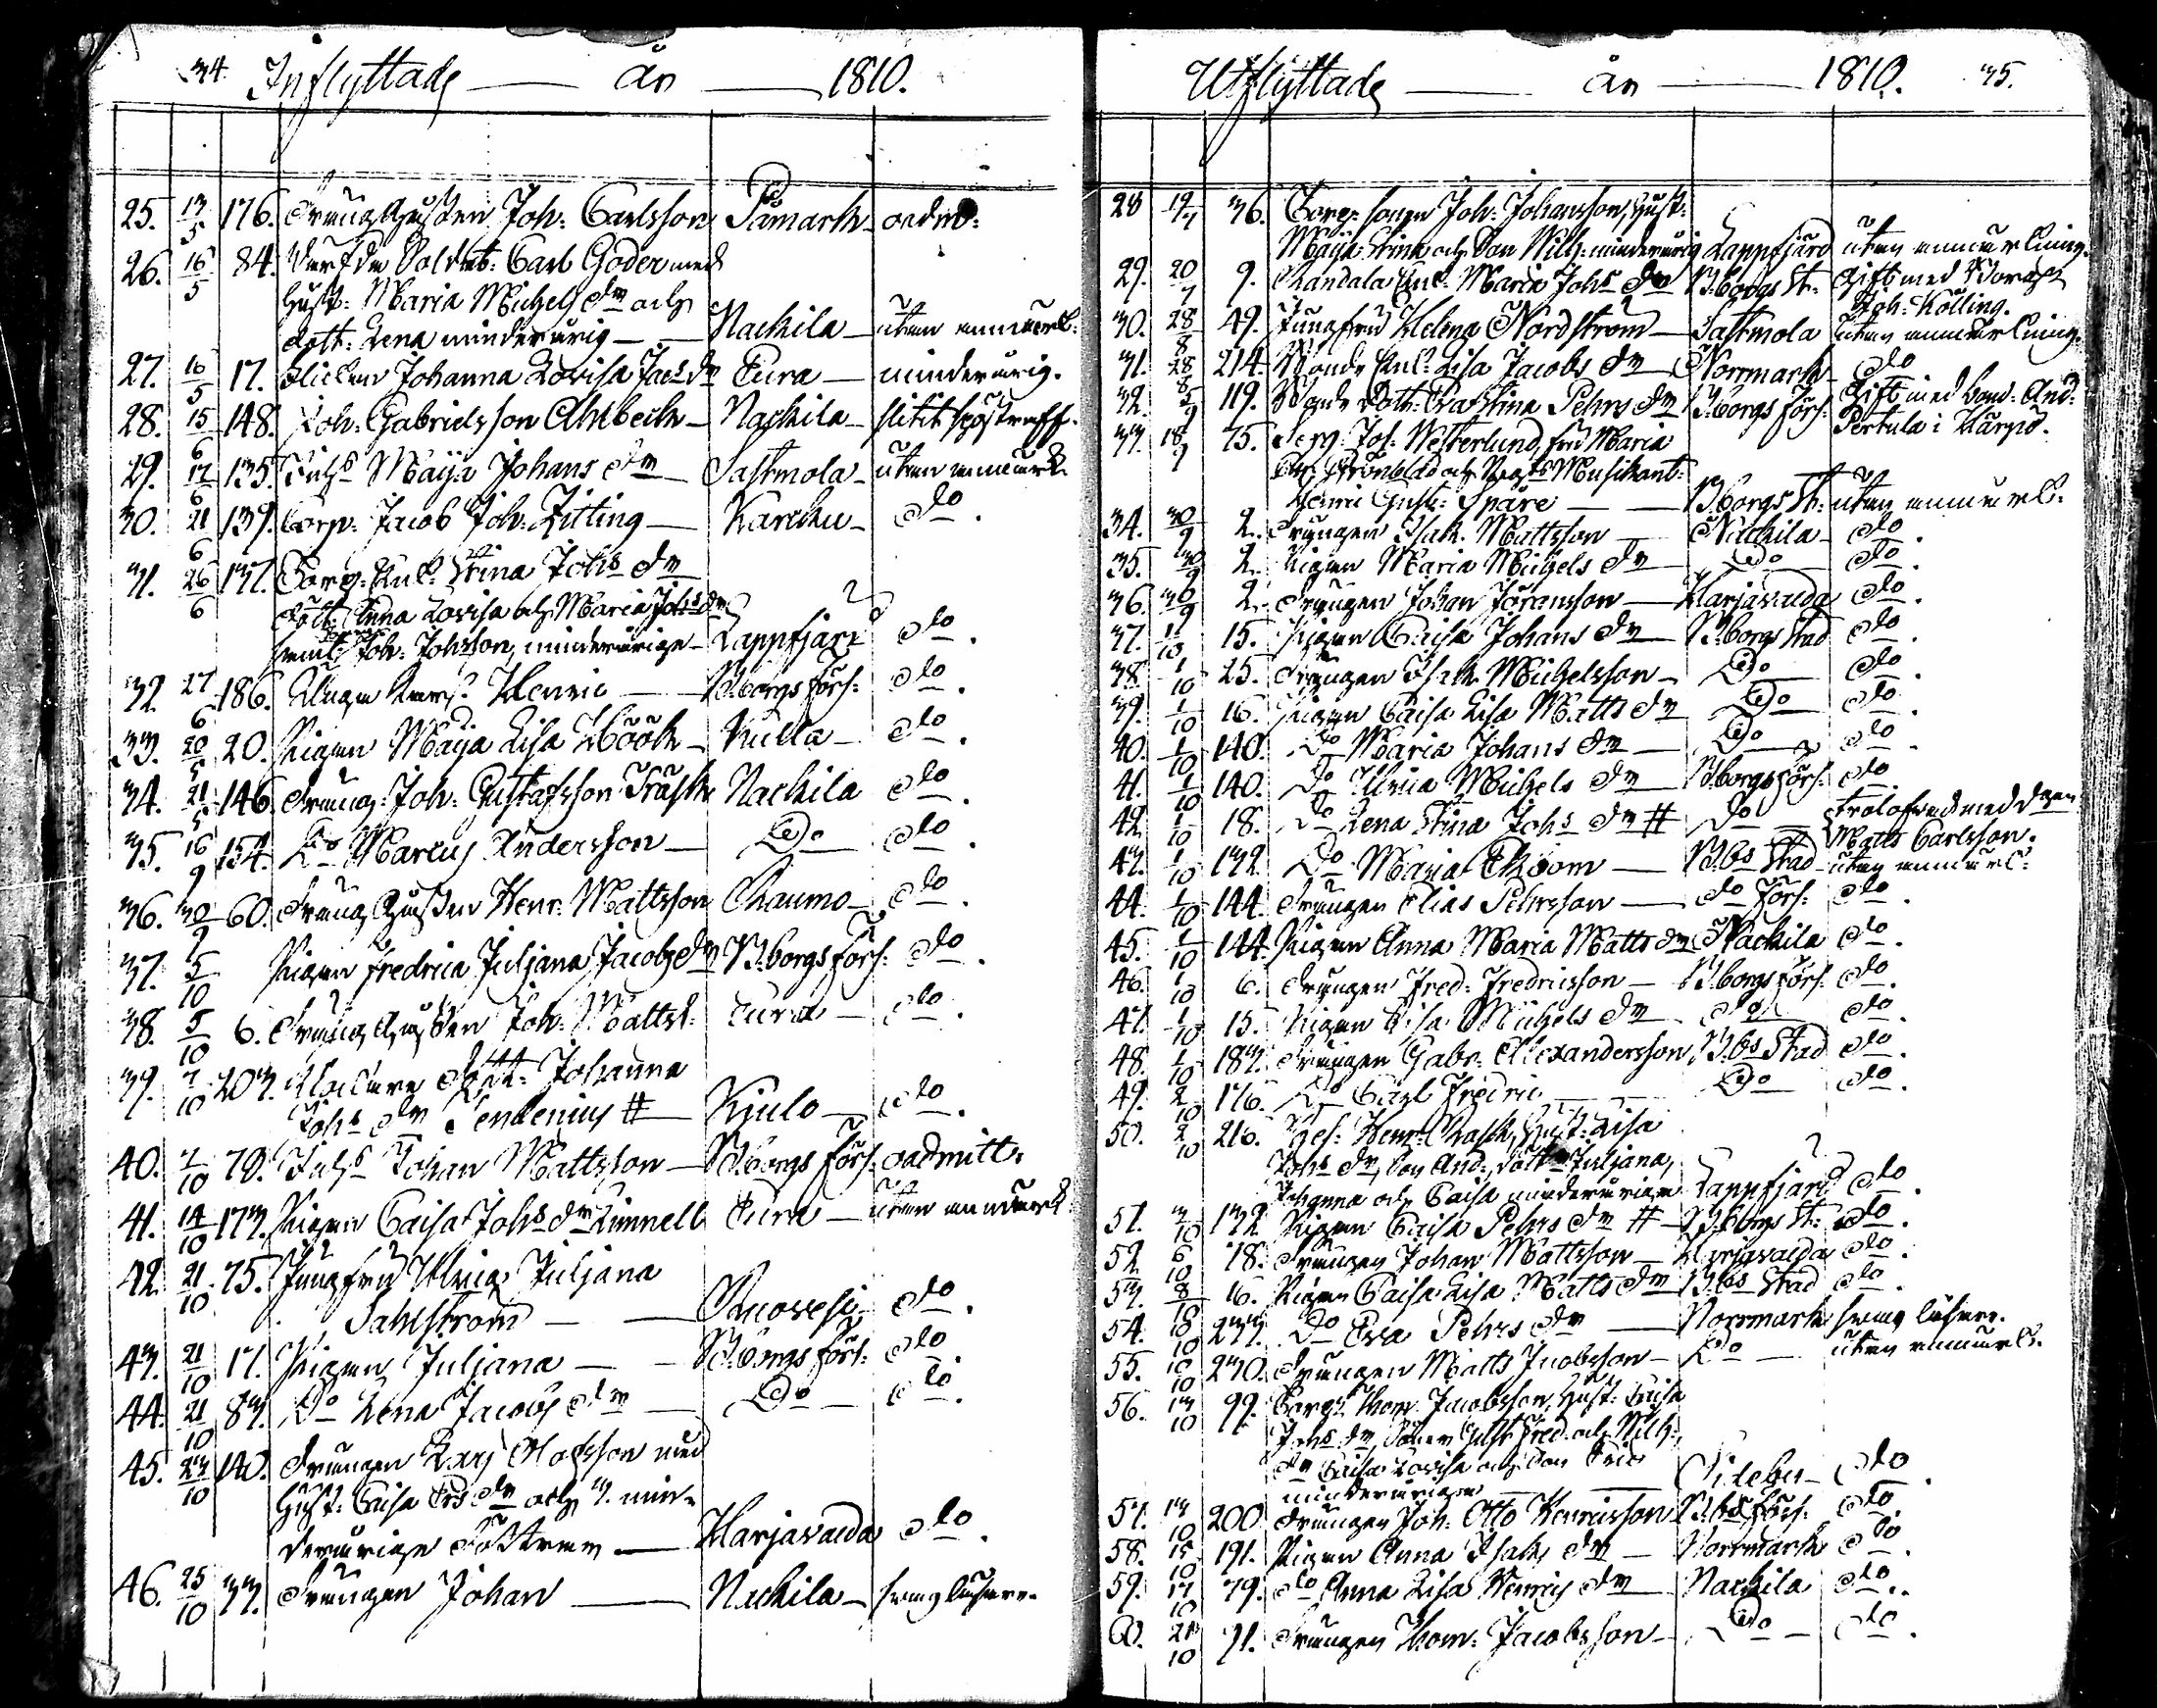 34. Inflyttade — år — 1810.
25. 13/5 176. Dreng Gossen Joh: Carlsson Påmark oadm:
26. 16/5 84. Soldat: Carl Goder med
Hust: Maria Michels dr och
dott: Lena minderårig — Nackila — utan anmärk:
27. 16/5 17. Flickan Johanna Lovisa Jacs dr Eura — minderårig.
28. 15/6 148. Joh: Gabrielsson Ahlbeck — Nackila —
29. 17/6 135. Inhs Maija Johans dr Sastmola — utan anmärk:
30. 21/6 139. Corp: Jacob Joh: Zitting — Karcku — do.
31. 26/6 137. Torp: Enk: Stina Johs dr
Dött: Anna Lovisa och Maria Johs dr
samt Joh: Johsson, minderårige — Lappfjärd do.
32. 27/6 186. Henric — B:borgs förs: do.
33. 20/5 20. Pigan Maija Lisa Höök — Kulla — do.
34. 21/5 146. Dreng: Joh: Gustafsson Träsk Nackila do.
35. 16/9 154. Do Marcus Andersson — Do do.
36. 30/9 60. Dreng Gossen Henr: Mattsson Raumo — do.
37. 5/10 Pigan Fredrica Juljana Jacobs dr B:borgs förs: do.
38. 5/10 6. Dreng Gossen Joh: Matts: Eura — do.
39. 7/10 203. Dött: Johanna
Johs dr Tendenius # Kiulo — do.
40. 7/10 70. Inhs Johan Mattsson — B:borgs förs: oadmitt:
41. 14/10 173. Pigan Caisa Johs dr Linnell Eura — utan anmärk:
42. 21/10 75. Jungfru Ulrica Juljana
Sahlström — Ruovesi — do.
43. 21/10 17. Pigan Juljana — B:borgs förs: do.
44. 21/10 83. Do Lena Jacobs dr — Do — do.
45. 23/10 140. Drengen Lars Olofsson med
Hust: Caisa Ers dr och 3. min-
derårige Döttrar — Harjavalda do.
46. 25/10 33. Drengen Johan — Nackila — svag läsare.
Utflyttade — år — 1810. 35.
28 19/7 36. Torp: sonen Joh: Johansson, Hust:
Maija Stina och Son Wilh: minderårig Lappfjärd utan anmärkning.
29. 20/7 9. Enk: Maria Johs dr B:borgs St: Gift med
Joh: Kölling.
30. 28/8 49. Jungfru Helena Nordström — Sastmola utan anmärkning.
31. 28/8 214. Bonde Enk: Lisa Jacobs dr — Norrmark do
32. 8/9 119. Bonde Dott: Christina Pehrs dr B:borgs förs: Gift med bond: And:
Pertula i Harjo.
33. 18/9 75. Serg: Joh: Westerlund, fru Maria
Grönblad och Musikant:
Henric Gust: Spare — B:borgs St: utan anmärk:
34. 30/9 2. Drengen Isak Mattsson — Nackila do.
35. 30/9 2. Pigan Maria Michels dr — Do do.
36. 30/9 2. Drengen Johan Jöransson — Harjavalda do.
37. 1/10 15. Pigan Caisa Johans dr — B:borgs Stad do.
38. 1/10 25. Drengen Isak Michelsson — Do do.
39. 1/10 16. Pigan Caisa Lisa Matts dr Do do.
40. 1/10 140. Do Maria Johans dr — Do do.
41. 1/10 140. Do Ulrica Michels dr B:borgs förs: do.
42. 1/10 18. Do Lena Stina Johs dr # Do trolofvad med drgn
Matts Carlsson.
43. 1/10 132 Do Maria — B:bs Stad utan anmärk:
44. 1/10 144. Drengen Elias Pehrsson — do förs: do.
45. 1/10 144. Pigan Anna Maria Matts dr Nackila do.
46. 1/10 6. Drengen Fred: Fredricsson — B:borgs förs: do.
47. 1/10 15. Pigan Lisa Michels dr do do.
48. 1/10 183. Drengen Gabr: Alexandersson B:bs Stad do.
49. 2/10 176. Do Carl Fredric — Do do.
50. 2/10 216. Henr: Rask, Hust: Lisa
Johs dr, Son And:, Dött: Juljana,
Johanna och Caisa minderårige Lappfjärd do.
51. 3/10 132 Pigan Caisa Pehrs dr # B:borgs St: do.
52. 6/10 18. Drengen Johan Mattsson — Harjavalda do.
53. 8/10 16. Pigan Caisa Lisa Matts dr B:bs Stad do.
54. 10/10 233. Do Eva Pehrs dr — Norrmark svag läsare.
55. 10/10 230. Drengen Matts Jacobsson — Do — utan anmärk:
56. 13/10 99. Torp: Thom: Jacobsson, Hust: Caisa
Johs dr, Söner Gust: Fred: och Wilh:,
dr Caisa Lovisa och Son Eric
minderårige — Sideby — do.
57. 13/10 200. Drengen Joh: Otto Henricsson B:bs förs: do.
58. 15/10 191. Pigan Anna Isaks dr — Norrmark do.
59. 17/10 79. do Anna Lisa Henrics dr Nackila do.
60. 21/10 31. Drengen Thom: Jacobsson — Do — do.